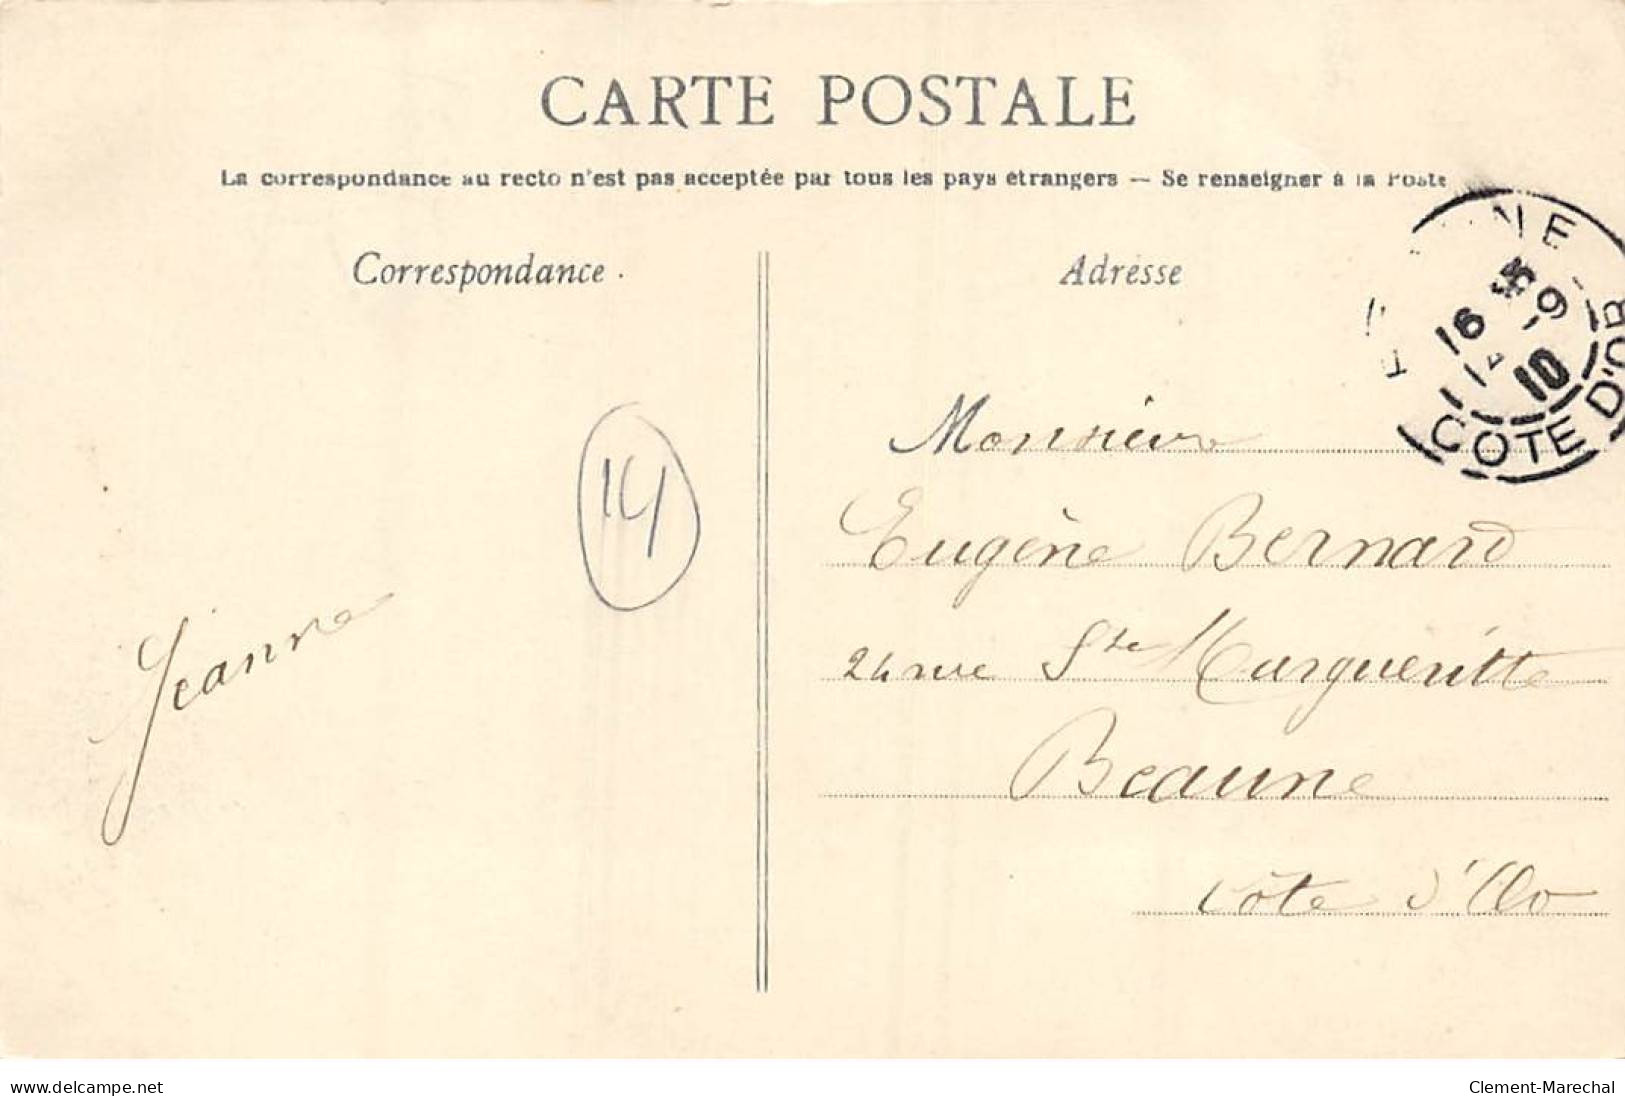 CARTE POSTALE
La correspondance au recto n'est pas acceptée par tous les pays étrangers — Se renseigner à la Poste
Correspondance
Adresse
16 45
14 -9
10
COTE D'OR
Monsieur
Eugène Bernard
14
24 rue Ste Margueritte
Jeanne
Beaune
Côte d'Or
www.delcampe.net
Clement-Marechal